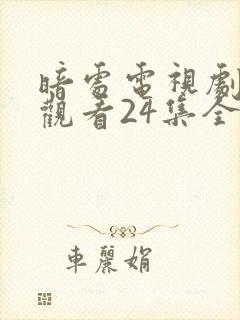 暗處電視劇
觀看24集全
車麗娟